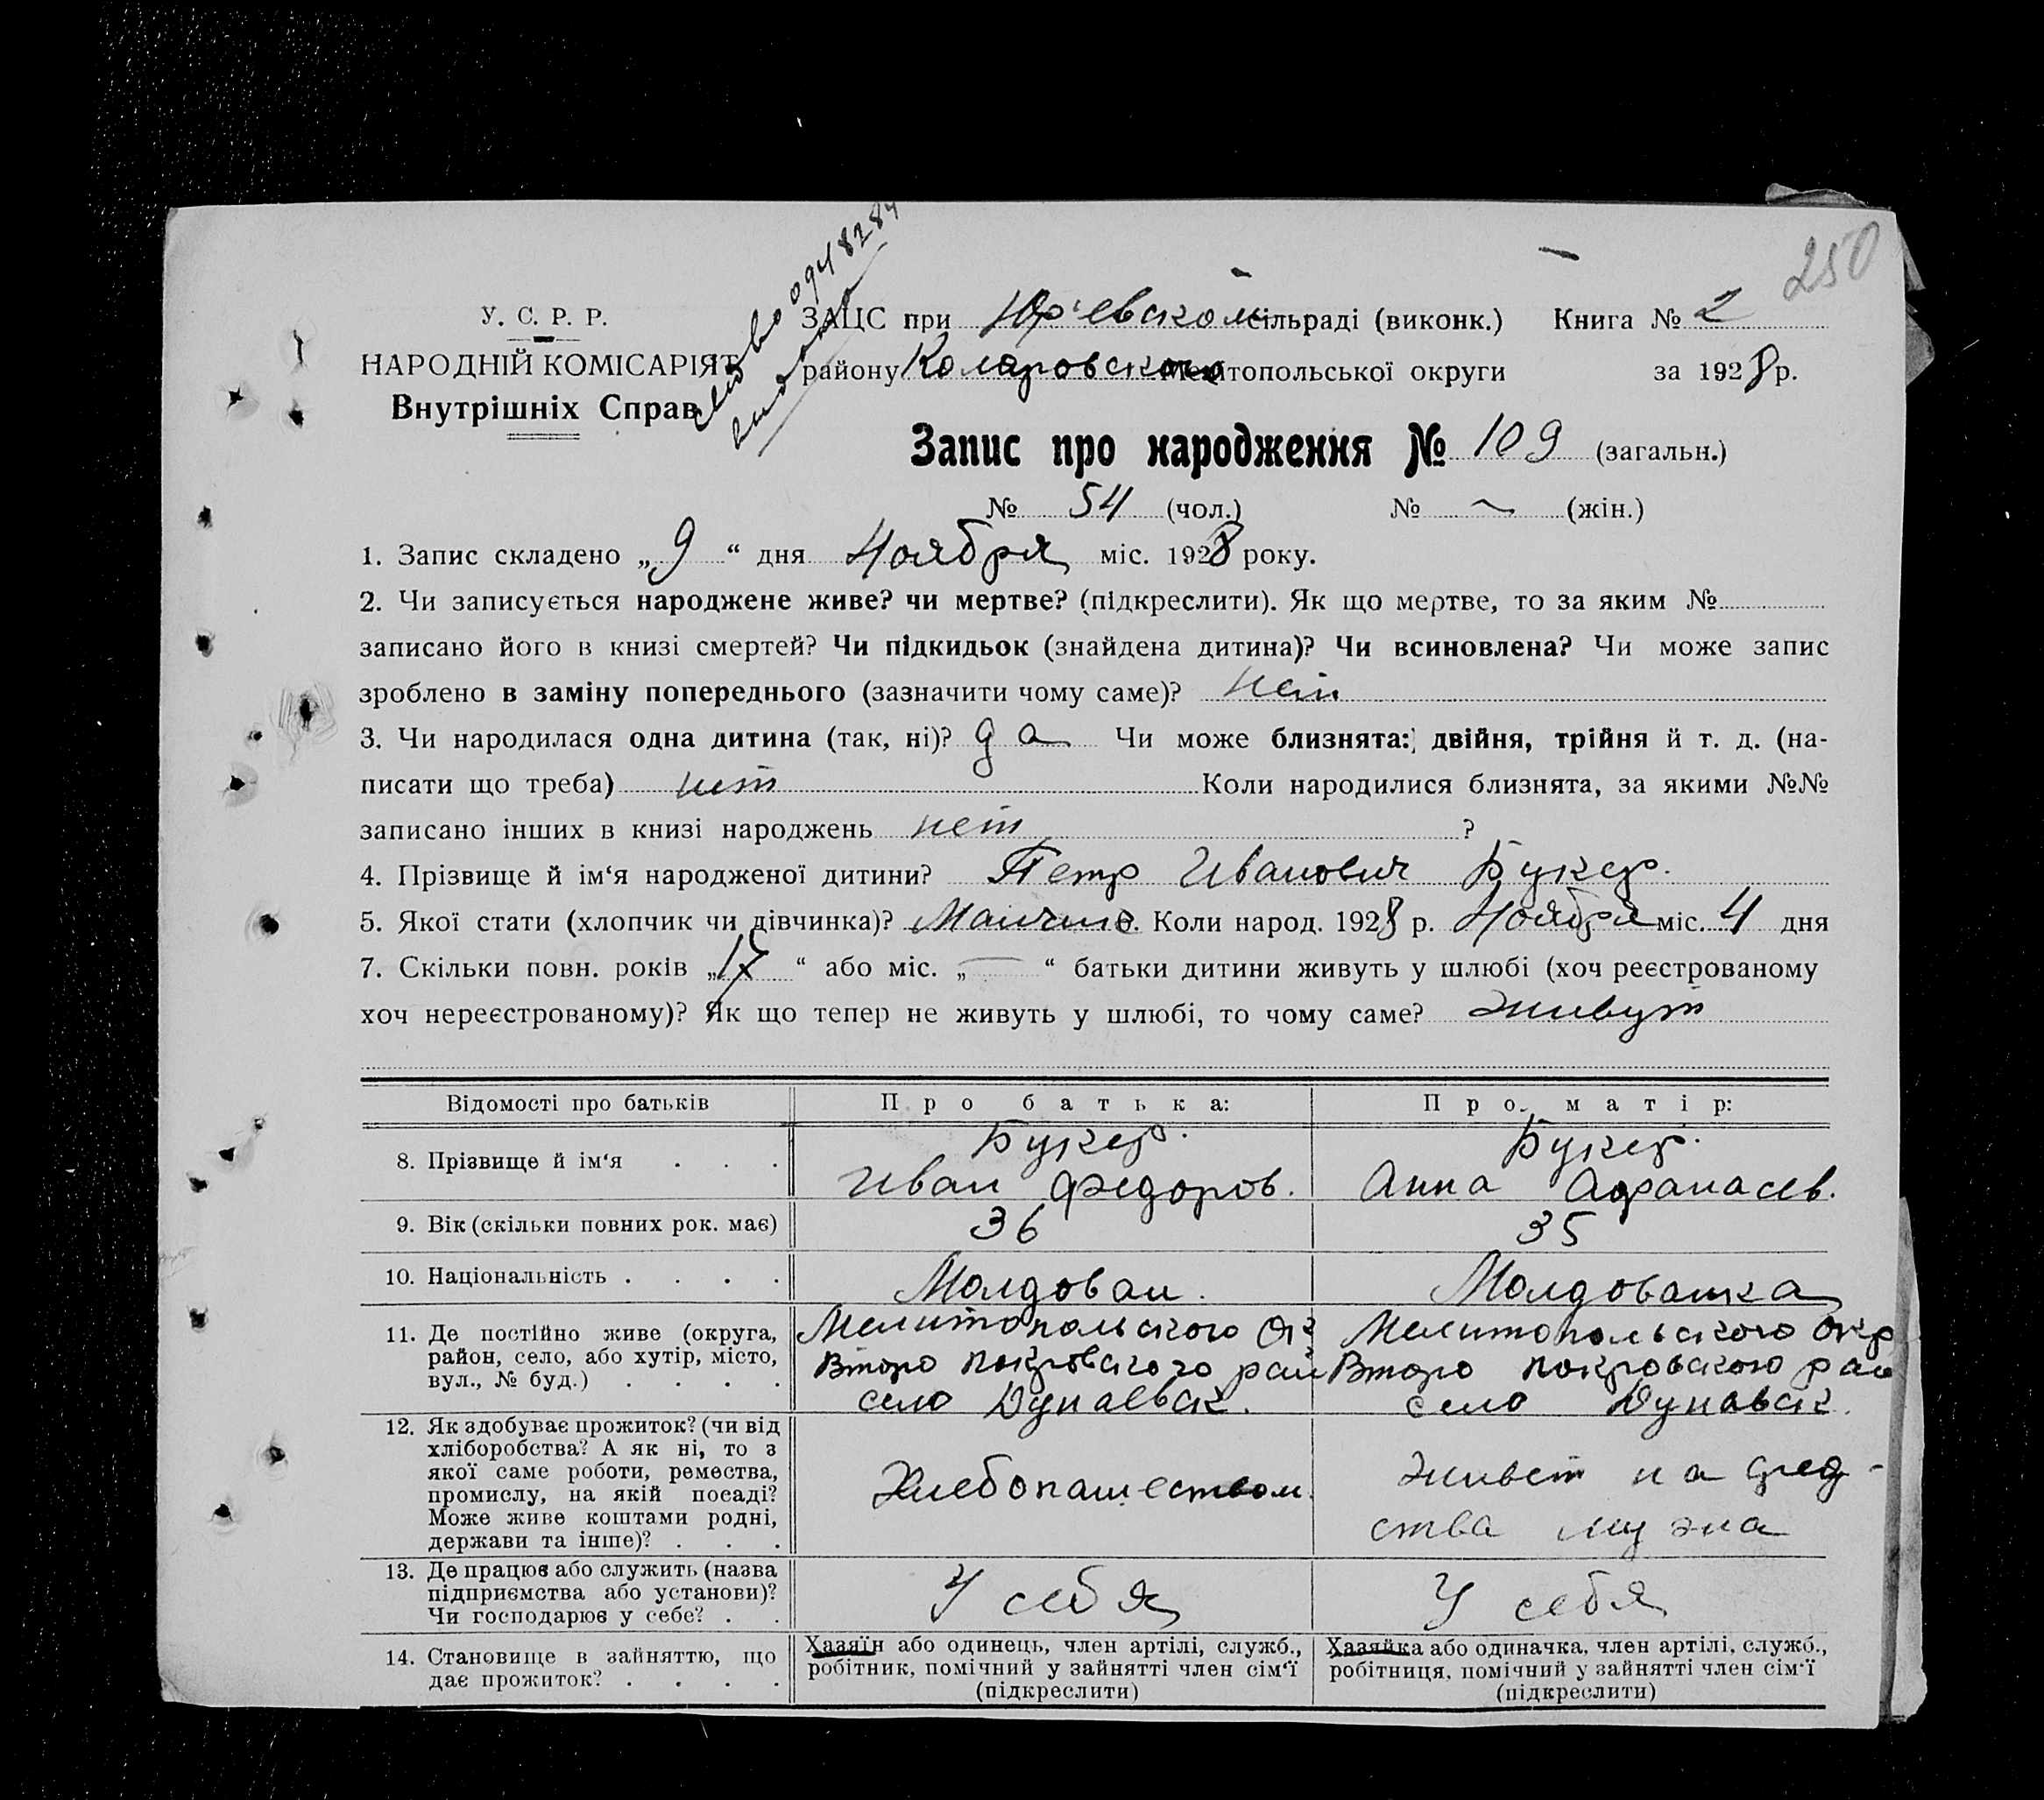 250
У. С. Р. Р.
НАРОДНІЙ КОМІСАРІЯТ
Внутрішніх Справ
0948284
ЗАЦС при Юр'евском сільраді (виконк.) Книга № 2
району Коларовского Мелітопольської округи за 1928 р.
Запис про народження № 109 (загальн.)
№ 54 (чол.) № ~ (жін.)
1. Запис складено „9“ дня Ноября міс. 1928 року.
2. Чи записується народжене живе? чи мертве? (підкреслити). Як що мертве, то за яким №
записано його в книзі смертей? Чи підкидьок (знайдена дитина)? Чи всиновлена? Чи може запис
зроблено в заміну попереднього (зазначити чому саме)? нет
3. Чи народилася одна дитина (так, ні)? да Чи може близнята: двійня, трійня й т. д. (на-
писати що треба) нет Коли народилися близнята, за якими №№
записано інших в книзі народжень нет ?
4. Прізвище й ім‘я народженої дитини? Петр Иванович Букер.
5. Якої стати (хлопчик чи дівчинка)? Коли народ. 1928 р. Ноября міс. 4 дня
7. Скільки повн. років „17“ або міс. „—“ батьки дитини живуть у шлюбі (хоч реєстрованому
хоч нереєстрованому)? Як що тепер не живуть у шлюбі, то чому саме? живут
Відомості про батьків Про батька: Про матір:
8. Прізвище й ім‘я . . . Букер. Иван Федоров. Букер. Анна Афанасев.
9. Вік (скільки повних рок. має) 36 35
10. Національність . . . . Молдован. Молдованка
11. Де постійно живе (округа, Мелитопольского Ок Мелитопольского окр
район, село, або хутір, місто, Второ покровского рай Второ покровского рай
вул., № буд.) . . . . село Дунаевск. село Дунавск.
12. Як здобуває прожиток? (чи від
хліборобства? А як ні, то з
якої саме роботи, ремества, Хлебопашеством. живет на сред-
промислу, на якій посаді?
Може живе коштами родні, ства мужа
держави та інше)? . . .
13. Де працює або служить (назва
підприємства або установи)? У себя У себя
Чи господарює у себе? . .
14. Становище в зайняттю, що
дає прожиток? . . . .
Хазяїн або одинець, член артілі, служб.,
робітник, помічний у зайнятті член сім‘ї
(підкреслити)
Хазяйка або одиначка, член артілі, служб.,
робітниця, помічний у зайнятті член сім‘ї
(підкреслити)